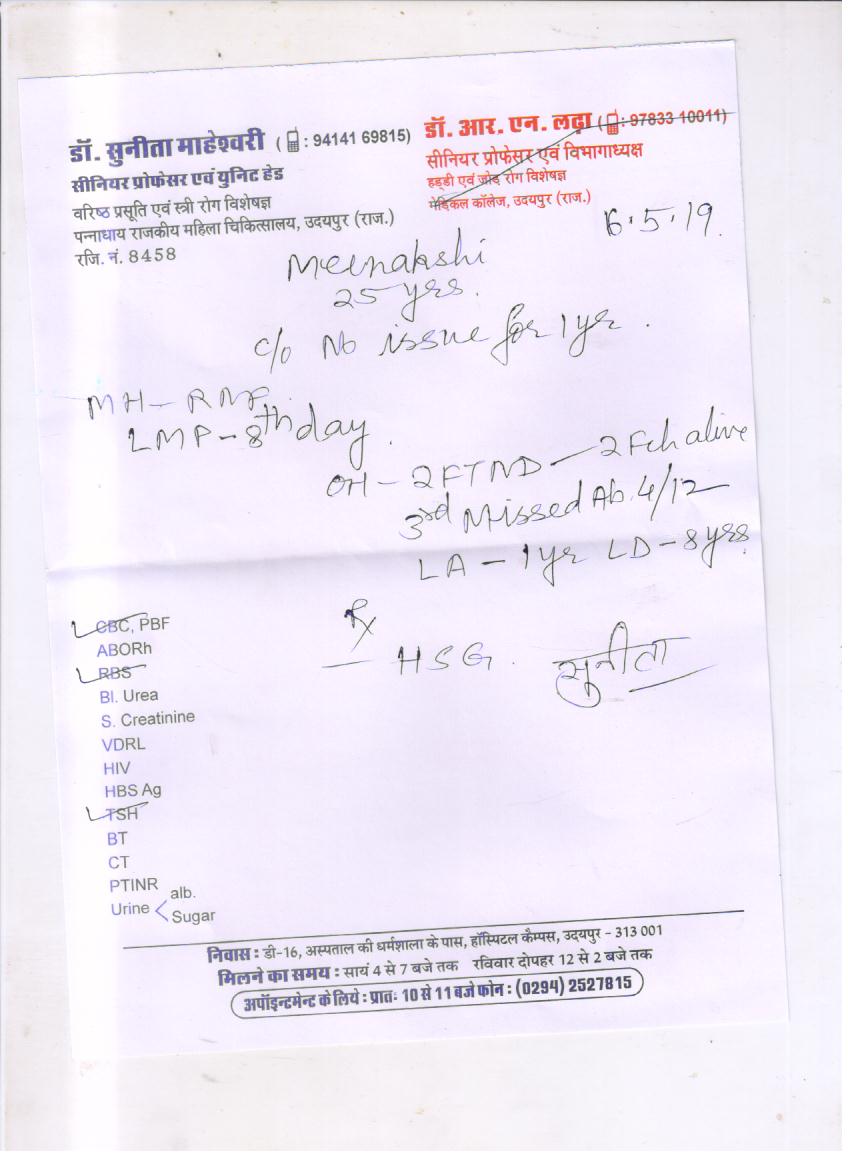 डॉ. सुनीता माहेश्वरी ( : 94141 69815)
सीनियर प्रोफेसर एवं युनिट हेड
वरिष्ठ प्रसूति एवं स्त्री रोग विशेषज्ञ
पन्नाधाय राजकीय महिला चिकित्सालय, उदयपुर (राज.)
रजि. नं. 8458
डॉ. आर. एन. लढ़ा ( : 97833 10011)
सीनियर प्रोफेसर एवं विभागाध्यक्ष
हड्डी एवं जोड़ रोग विशेषज्ञ
मेडिकल कॉलेज, उदयपुर (राज.)
6.5.19
Meenakshi
25 yrs.
c/o No issue for 1 yr.
MH - RMP
LMP - 8th day.
OH - 2 FTND - 2 Fch alive
3rd Missed Ab. 4/12
LA - 1 yr LD - 8 yrs
Rx
- HSG.
सुनीता
CBC, PBF
ABORh
RBS
Bl. Urea
S. Creatinine
VDRL
HIV
HBS Ag
TSH
BT
CT
PTINR
Urine < alb.
Sugar
निवास : डी-16, अस्पताल की धर्मशाला के पास, हॉस्पिटल कैम्पस, उदयपुर - 313 001
मिलने का समय : सायं 4 से 7 बजे तक रविवार दोपहर 12 से 2 बजे तक
अपॉइन्टमेन्ट के लिये : प्रातः 10 से 11 बजे फोन : (0294) 2527815